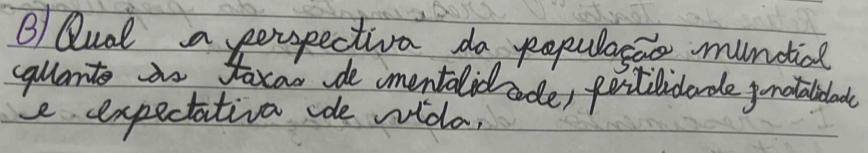 B) Qual a perspectiva da população mundial
quanto às taxas de mentalidade, fertilidade, natalidade
e expectativa de vida.